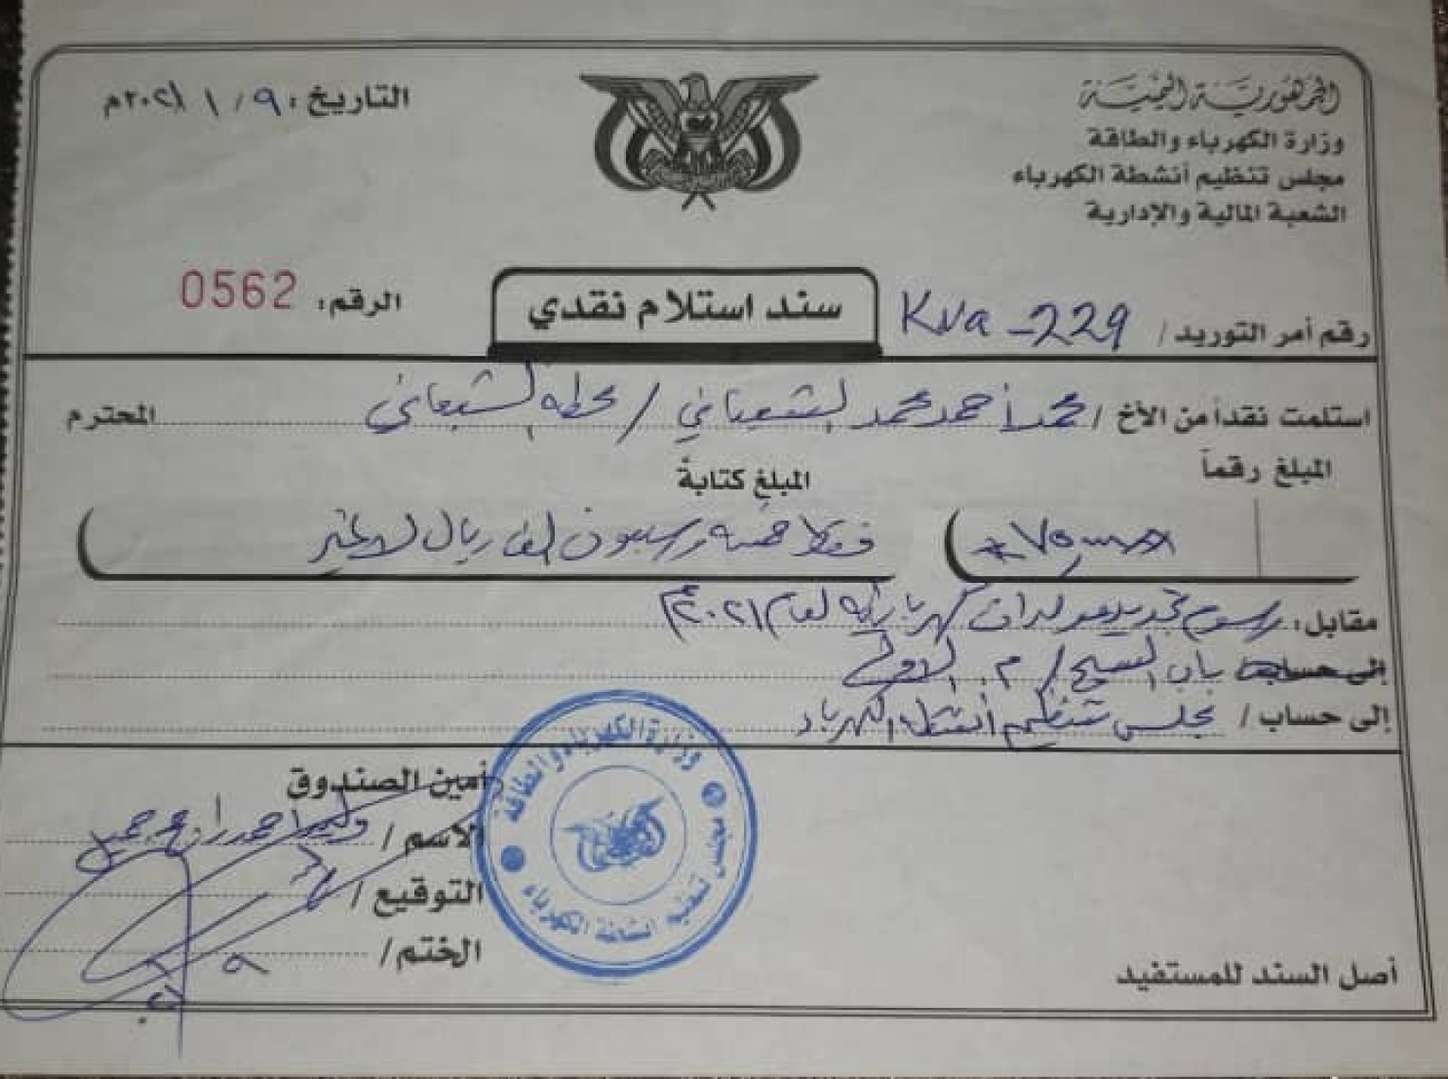 الجمهورية اليمنية
وزارة الكهرباء والطاقة
مجلس تنظيم أنشطة الكهرباء
الشعبة المالية والإدارية
التاريخ: ٩ / ١ / ٢٠٢١م
الرقم: 0562
سند استلام نقدي
رقم أمر التوريد / Kva - 229
استلمت نقداً من الأخ / محمد أحمد محمد الشعباني / محطة الشعباني المحترم
المبلغ رقماً
المبلغ كتابةً
فقط خمسة وسبعون الف ريال لاغير
مقابل: رسوم تجديد مولدات كهربائية لعام ٢٠٢١م
إلى حساب
إلى حساب / مجلس تنظيم أنشطة الكهرباء
أمين الصندوق
الاسم / وليد احمد راجح جميل
التوقيع /
الختم /
أصل السند للمستفيد
وزارة الكهرباء والطاقة
مجلس تنظيم انشطة الكهرباء